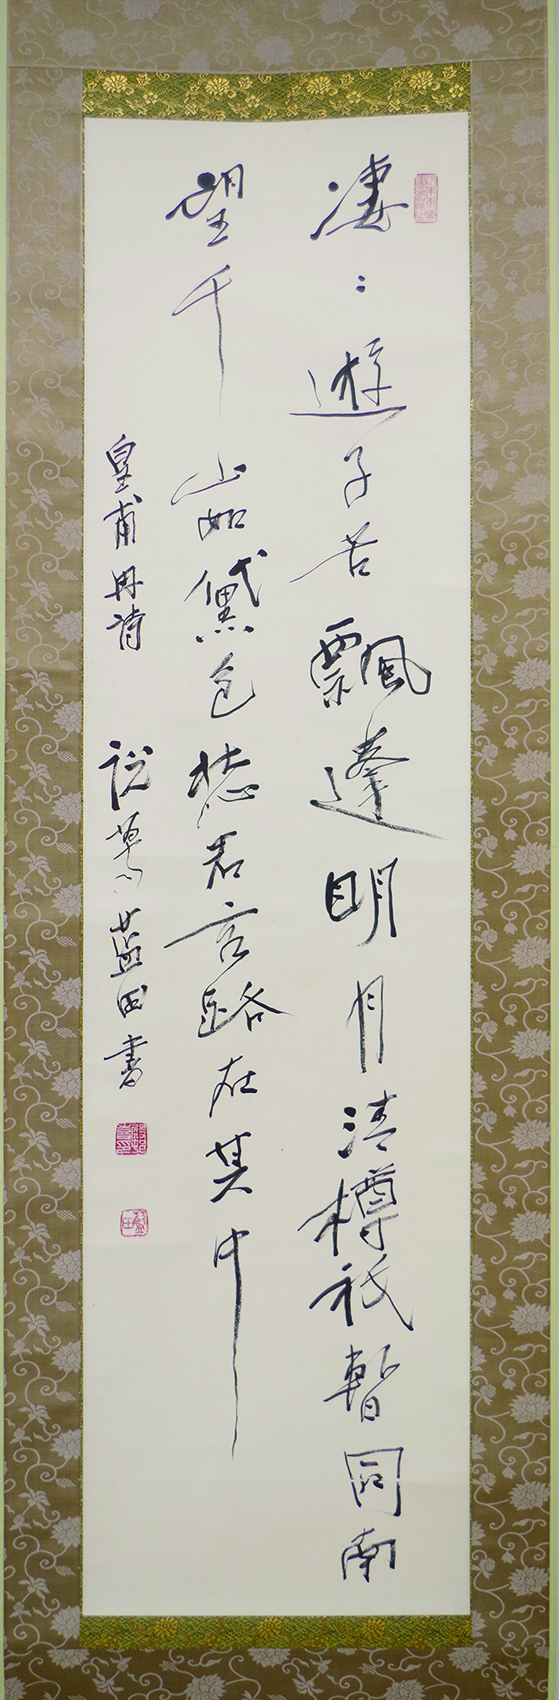 凄〻遊子苦飄蓬明月清樽祇暫同南
望千山如黛色愁君客路在其中
皇甫冉詩 藍田書
藍田